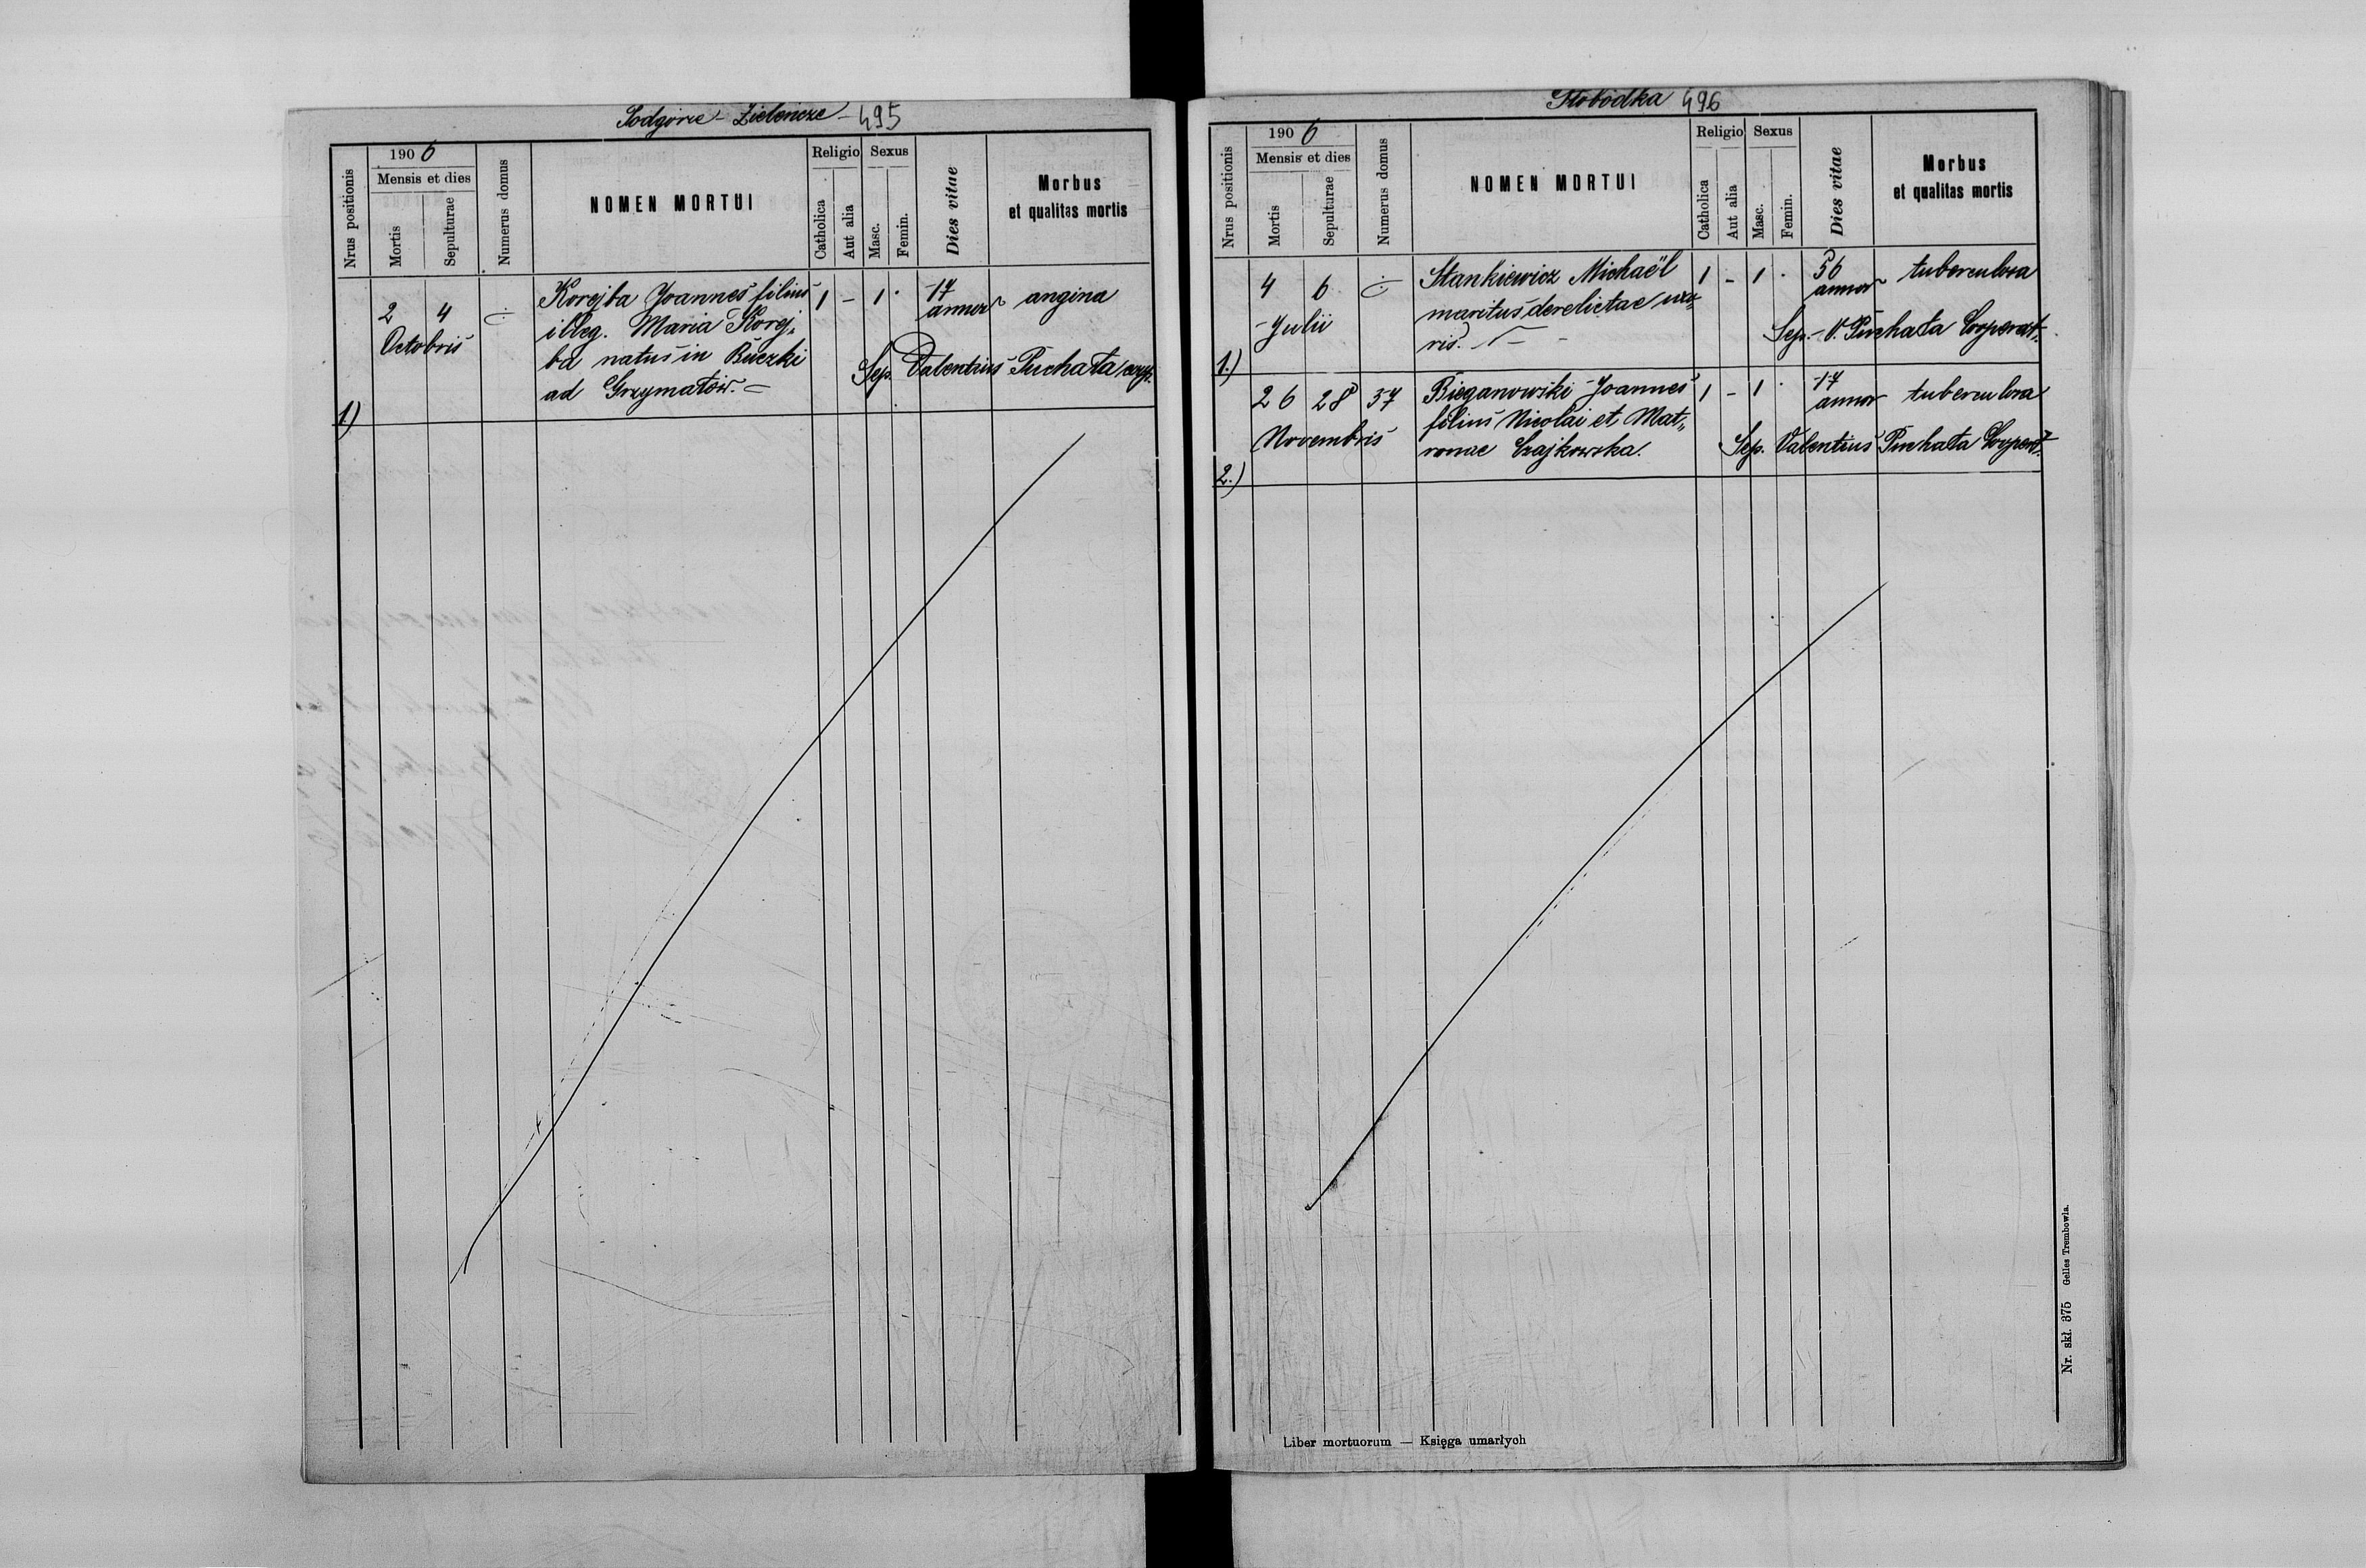 Podgórze - Zielencze - 495
Nrus positionis
1906
Mensis et dies
Mortis
Sepulturae
Numerus domus
NOMEN MORTUI
Religio
Catholica
Aut alia
Sexus
Masc.
Femin.
Dies vitae
Morbus
et qualitas mortis
2 4 Korejba Joannes filius 1 - 1 · 17 annor angina
Octobris illeg. Maria Korej„
ba natus in Buczki Sep. Valentius Puchała coop.
ad Grzymałów.
1)
Słobódka 496
Nrus positionis
1906
Mensis et dies
Mortis
Sepulturae
Numerus domus
NOMEN MORTUI
Religio
Catholica
Aut alia
Sexus
Masc.
Femin.
Dies vitae
Morbus
et qualitas mortis
4 6 Stankiewicz Michaël 1 - 1 · 56 annor tuberculosa
Julii maritus derelictae uxo„
ris. Sep. - V. Puchała Cooperat.
1.)
26 28 37 Bieganowski Joannes 1 - 1 · 17 annor tuberculosa
Novembris filius Nicolai et Mat„
ronae Czajkowska. Sep. Valentius Puchała Cooperat.
2.)
Nr. skł. 375 Gelles Trembowla.
Liber mortuorum — Księga umarłych